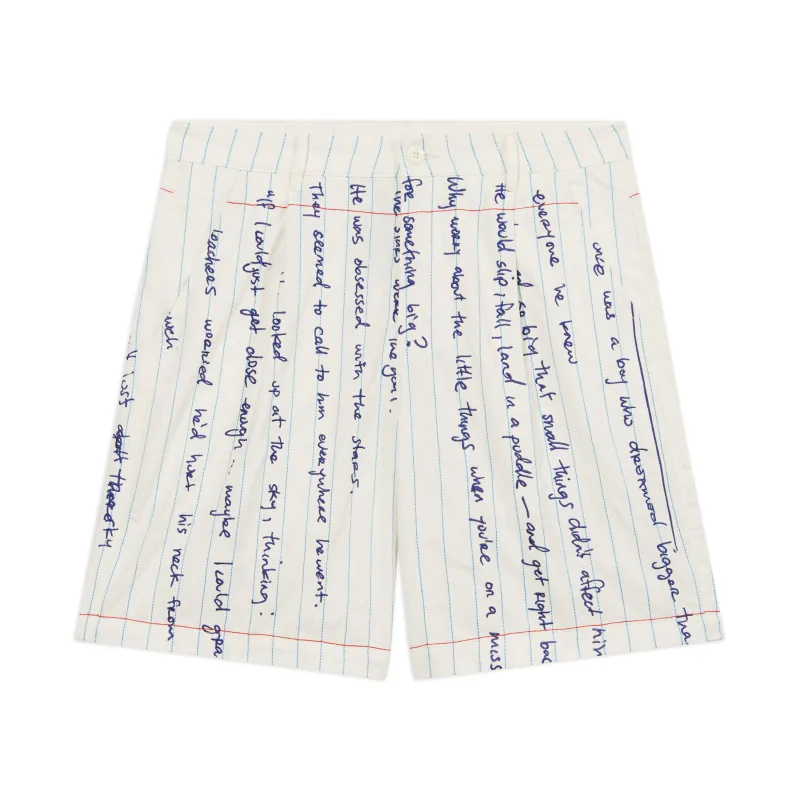 was a boy who dreamed bigger
everyone he knew
so big that small things didn't affect him
He would slip, fall, land in a puddle — and get right bac
Why worry about the little things when you're on a miss
for something big?
were the goal.
He was obsessed with the stars.
They seemed to call to him everywhere he went.
looked up at the sky, thinking:
"If I could just get close enough... maybe I could gra
teachers worried he'd hurt his neck from
just